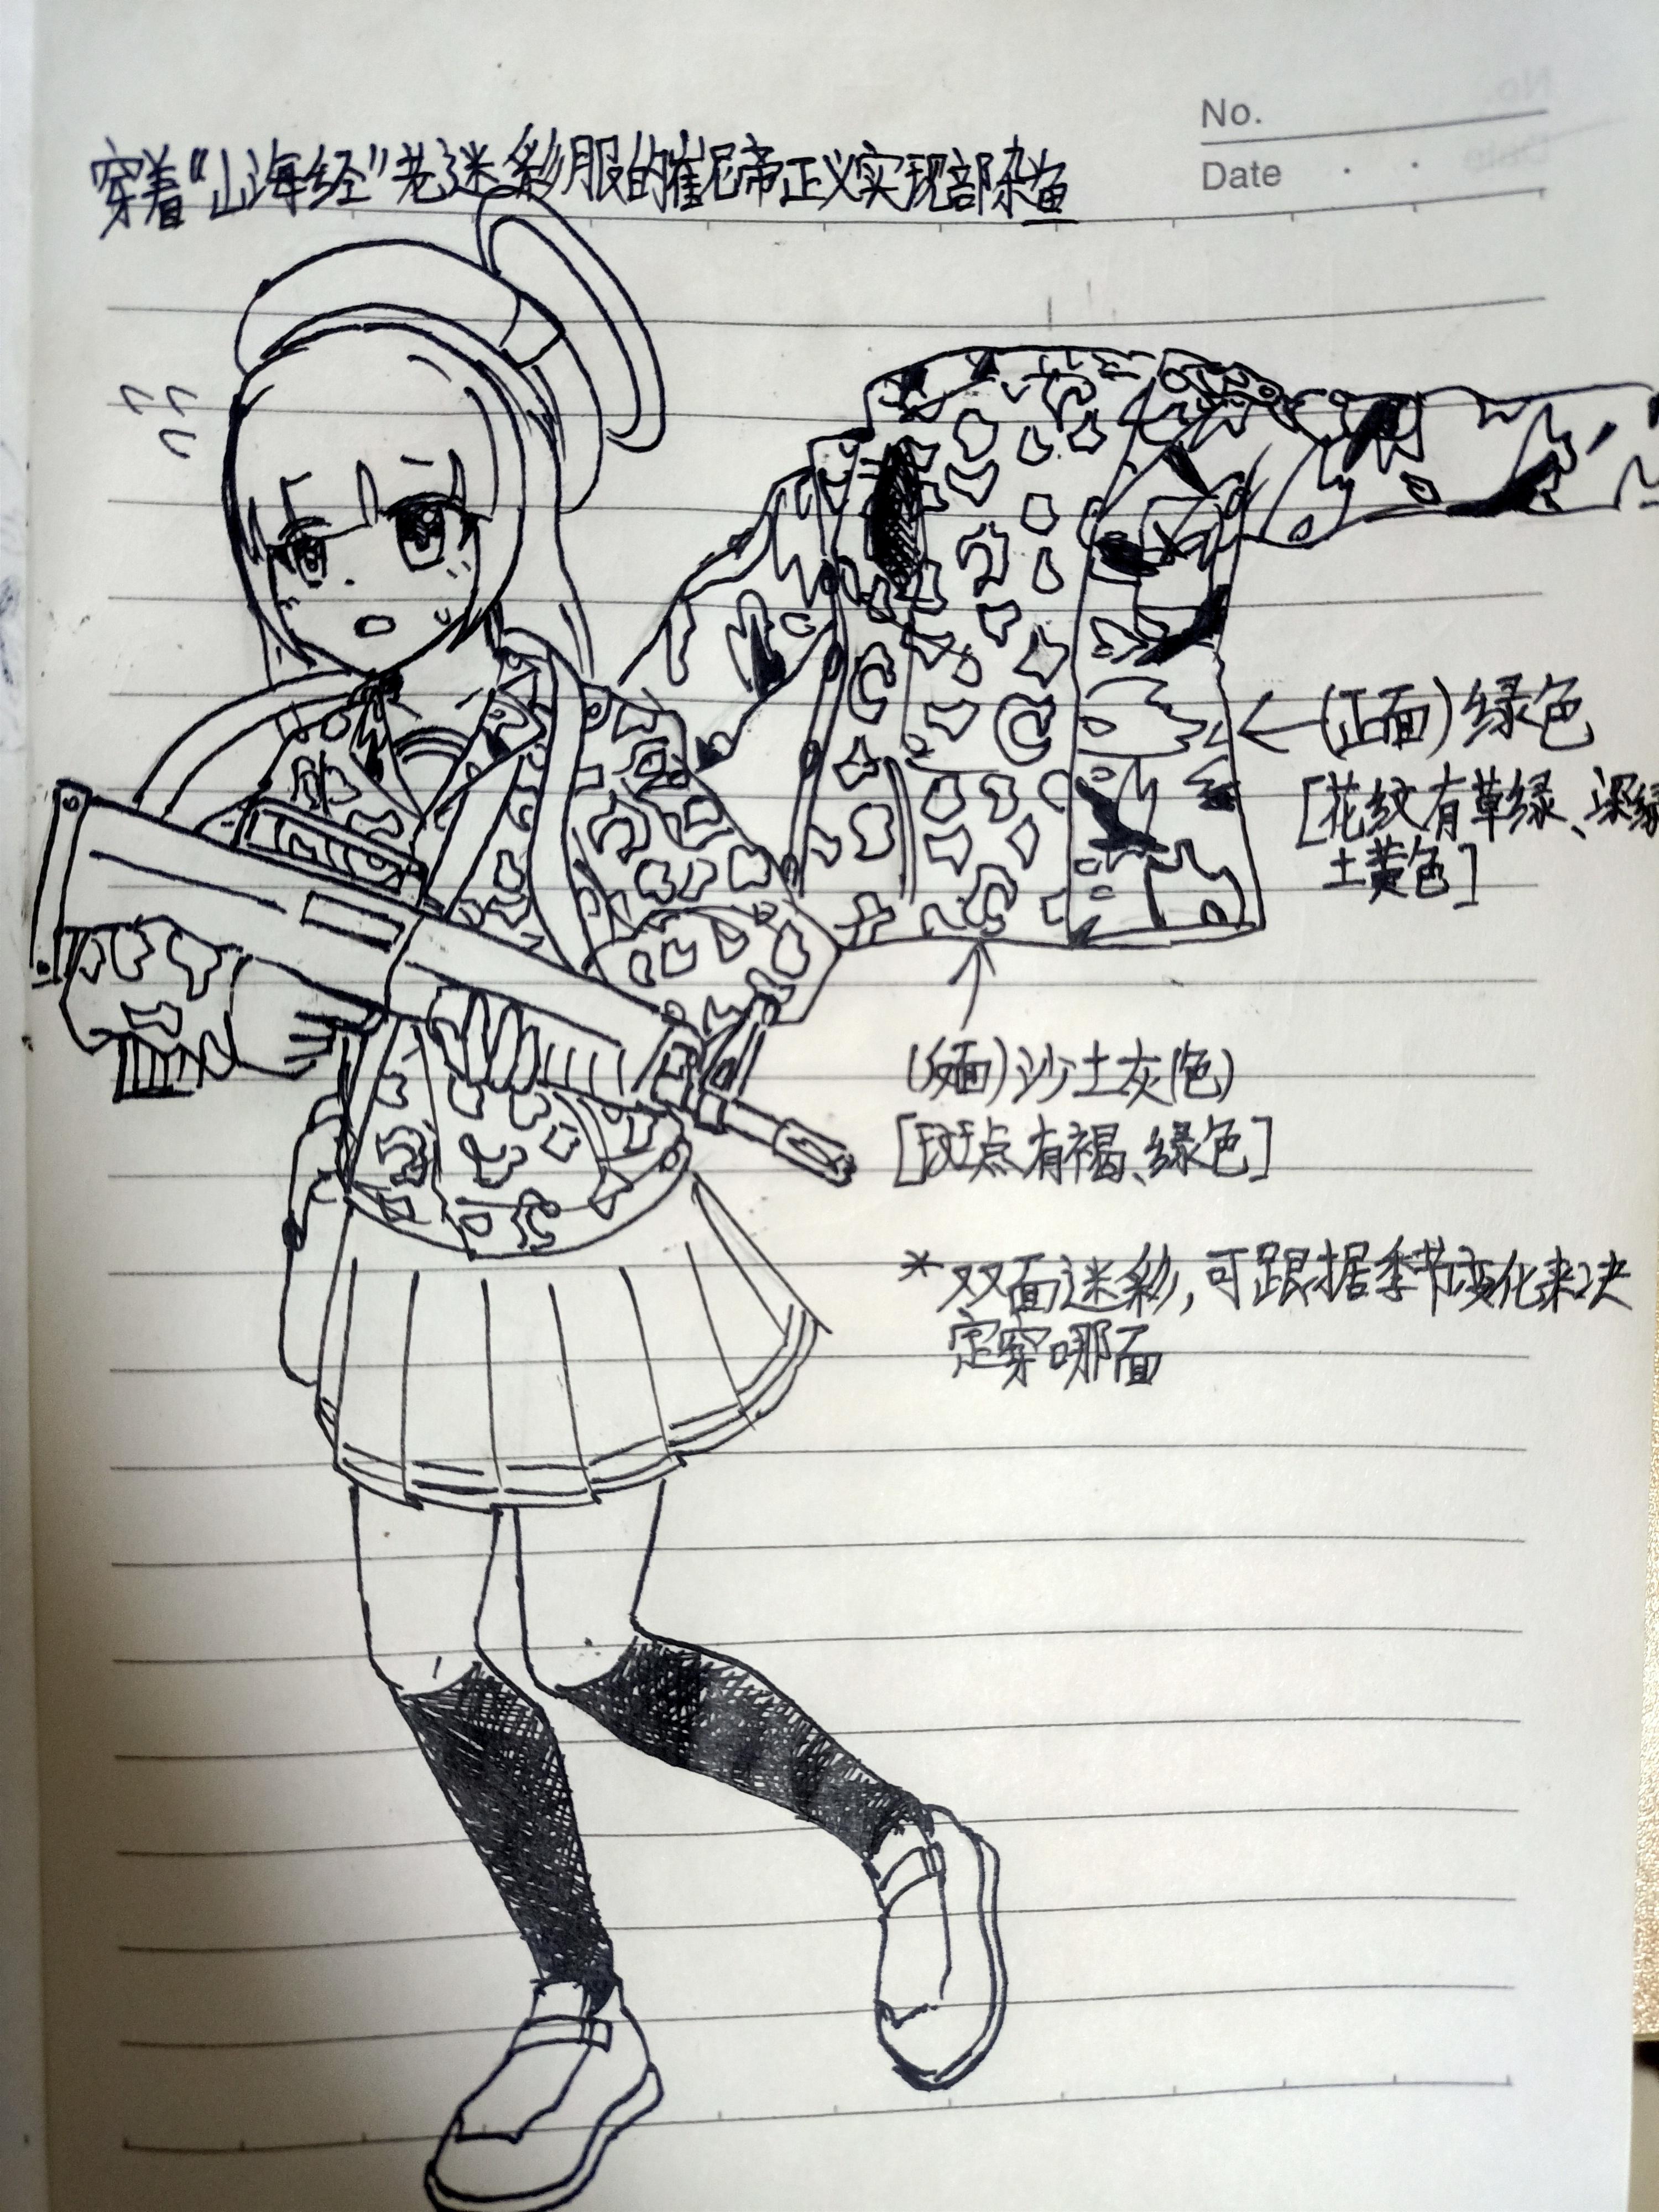 No.
Date
穿着“山海经”老迷彩服的崔尼帝正义实现部杂鱼
←(正面)绿色
[花纹有草绿、深绿
土黄色]
(反面)沙土灰(色)
[斑点有褐、绿色]
*双面迷彩,可跟据季节变化来决
定穿哪面